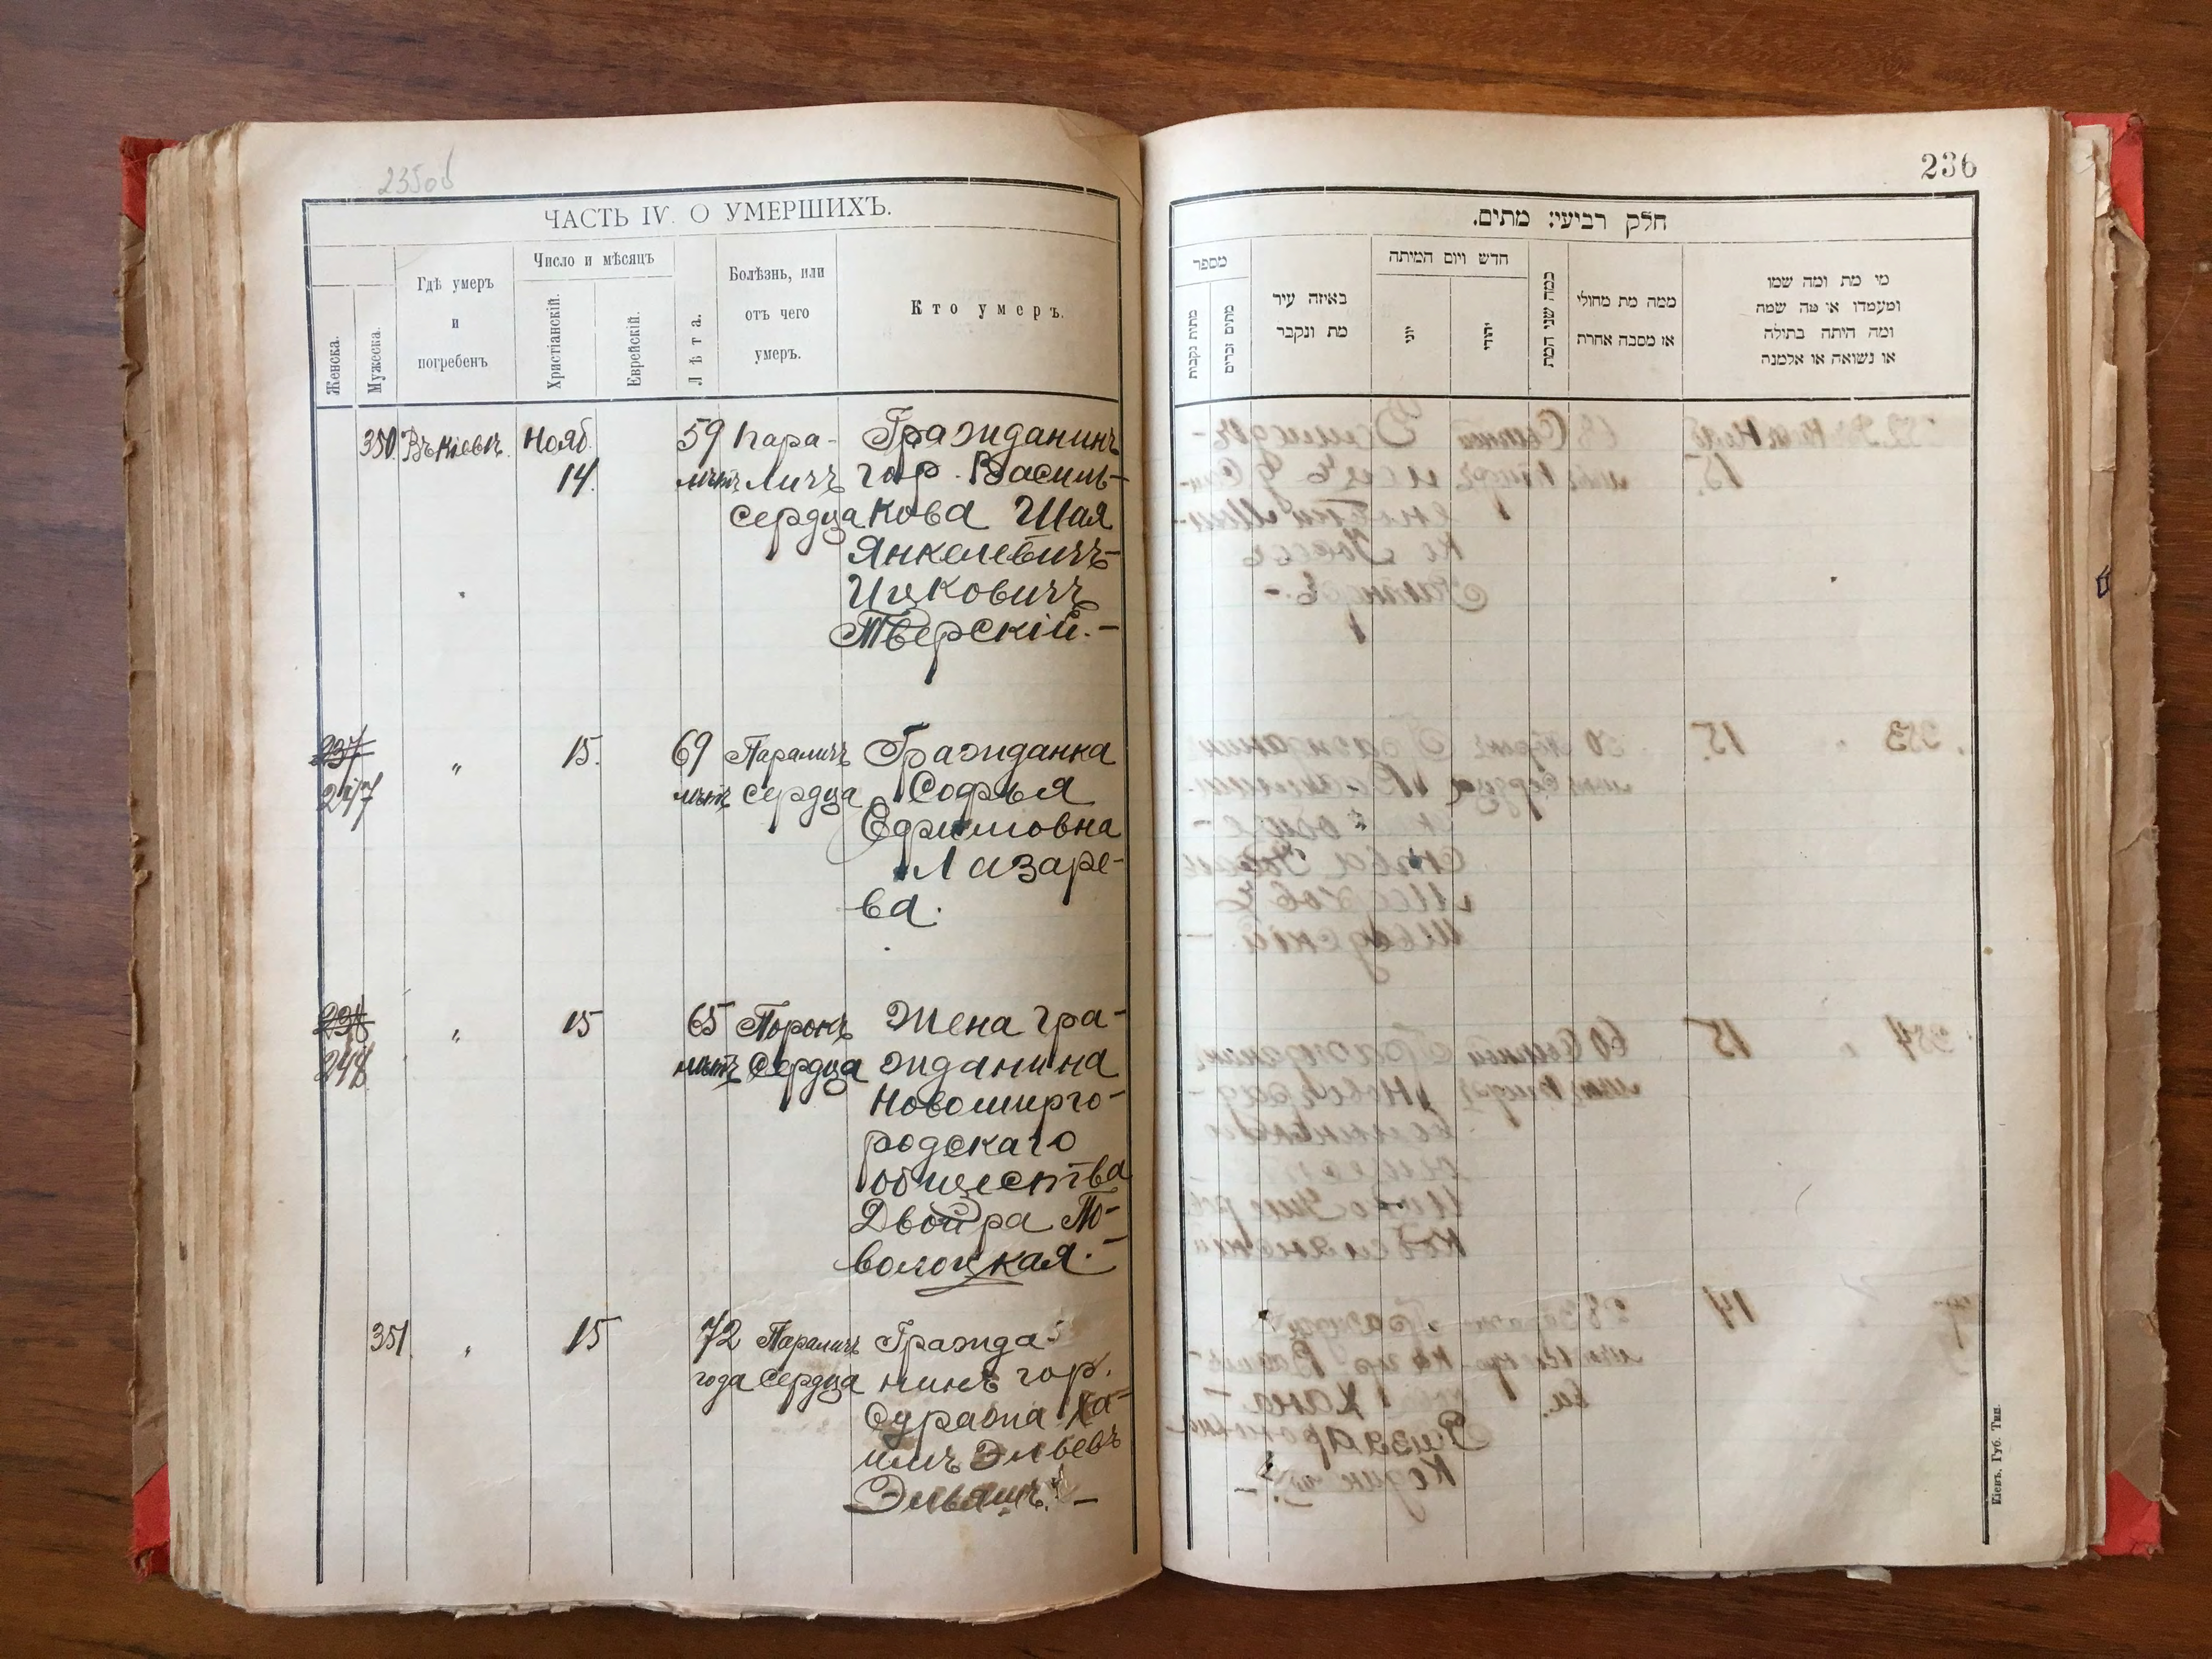 235об
ЧАСТЬ IV. О УМЕРШИХЪ.
Женска.
Мужеска.
Гдѣ умеръ
и
погребенъ
Число и мѣсяцъ
Христіанскій.
Еврейскій.
Лѣта.
Болѣзнь, или
отъ чего
умеръ.
Кто умеръ.
350. Въ Кіевѣ. Нояб. 59 Пара- Гражданинъ
14. лѣтъ личъ гор. Василь-
сердца кова Шая
Янкелевичъ-
Ицковичъ
Тверскій.-
237 " 15. 69 Параличъ Гражданка
247 лѣтъ сердца Софья
Ефимовна
Лазаре-
ва.
238 " 15 65 Порокъ Жена гра-
248 лѣтъ сердца жданина
Новомирго-
родскаго
общества
Двойра По-
волоцкая.-
351. " 15 72 Параличъ Гражда-
года сердца нинъ гор.
Ха-
имъ Эльевъ
Эльяшъ.-
236
חלק רביעי: מתים.
מספר
מתות נקבות
מתים זכרים
באיזה עיר
מת ונקבר
חדש ויום המיתה
יוני
יהודי
כמה שני המת
ממה מת מחולי
או מסבה אחרת
מי מת ומה שמו
ומעמדו או מה שמה
ומה היתה בתולה
או נשואה או אלמנה
Кіевъ. Губ. Тип.